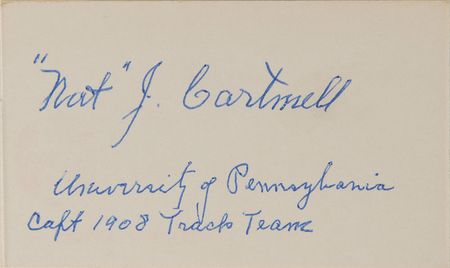 "Nat" J. Cartmell
University of Pennsylvania
Capt 1908 Track Team